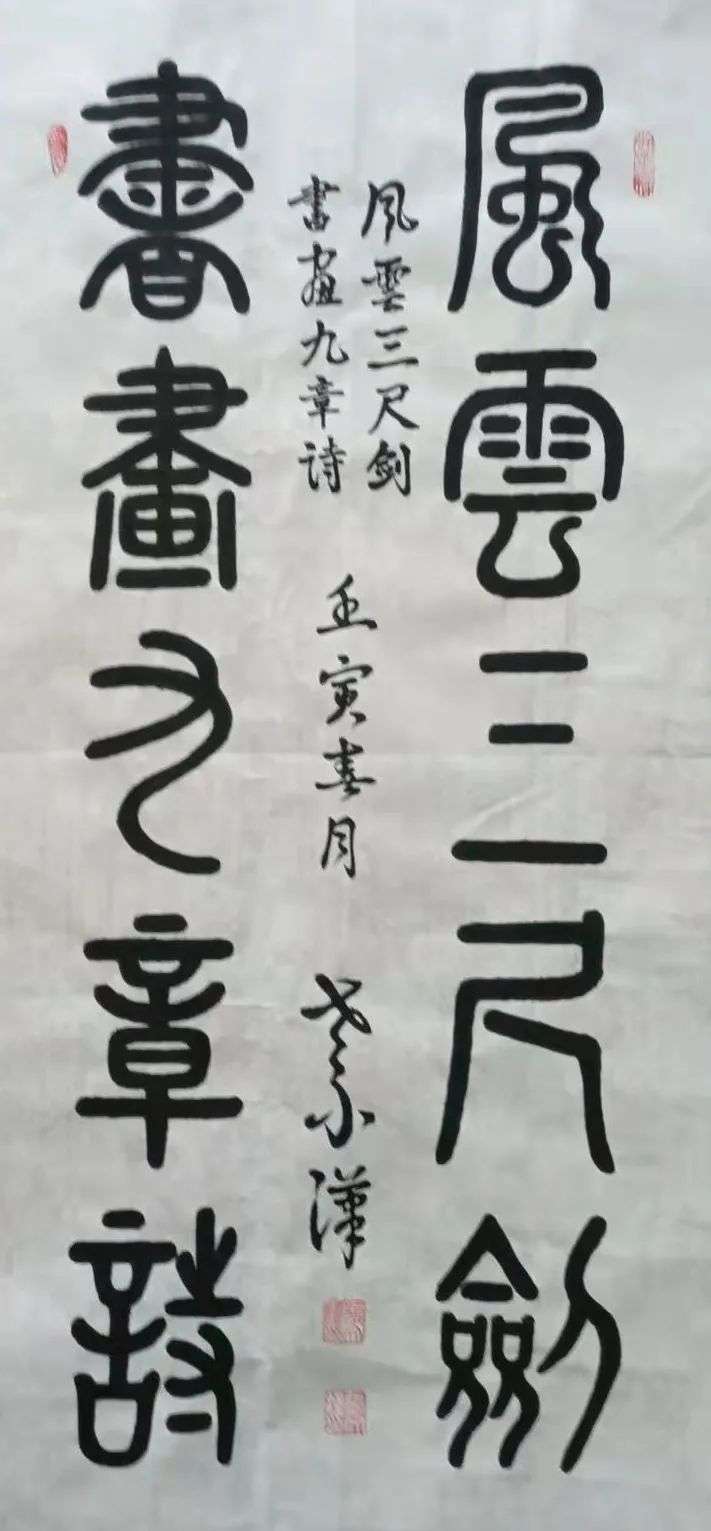 風雲三尺劍
風雲三尺剑
書画九章诗
壬寅春月
漢
書畫九章詩